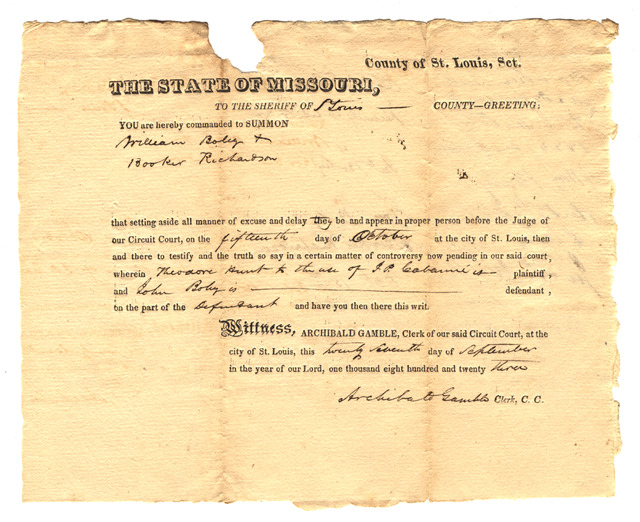 County of St. Louis, Sct.
THE STATE OF MISSOURI,
TO THE SHERIFF OF St Louis — COUNTY—GREETING:
YOU are hereby commanded to SUMMON
William Boly &
Booker Richardson
that setting aside all manner of excuse and delay they be and appear in proper person before the Judge of
our Circuit Court, on the fifteenth day of October at the city of St. Louis, then
and there to testify and the truth so say in a certain matter of controversy now pending in our said court,
wherein Theodore Hunt to the use of J.P. Cabanné is plaintiff,
and John Boly is — defendant,
on the part of the Defendant and have you then there this writ.
Witness, ARCHIBALD GAMBLE, Clerk of our said Circuit Court, at the
city of St. Louis, this twenty seventh day of September
in the year of our Lord, one thousand eight hundred and twenty three
Archibald Gamble Clerk, C. C.